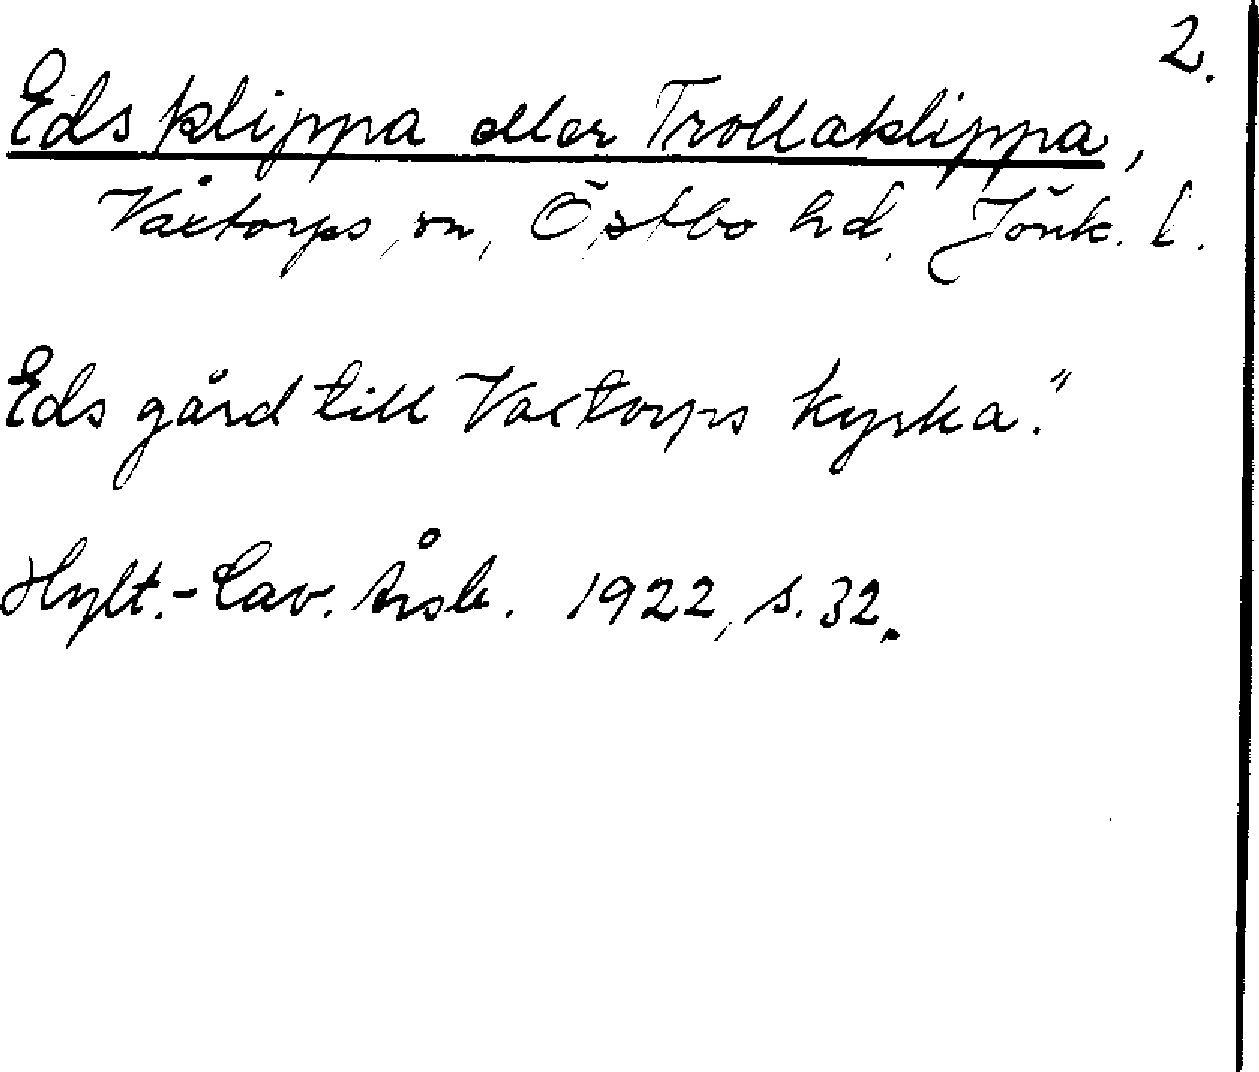 2.
Eds klippa eller Trollaklippa,
Våxtorps sn, Östbo hd, Jönk. l.
Eds gård till Vaxtorps kyrka."
Hylt.-Cav. Årsb. 1922, s. 32.